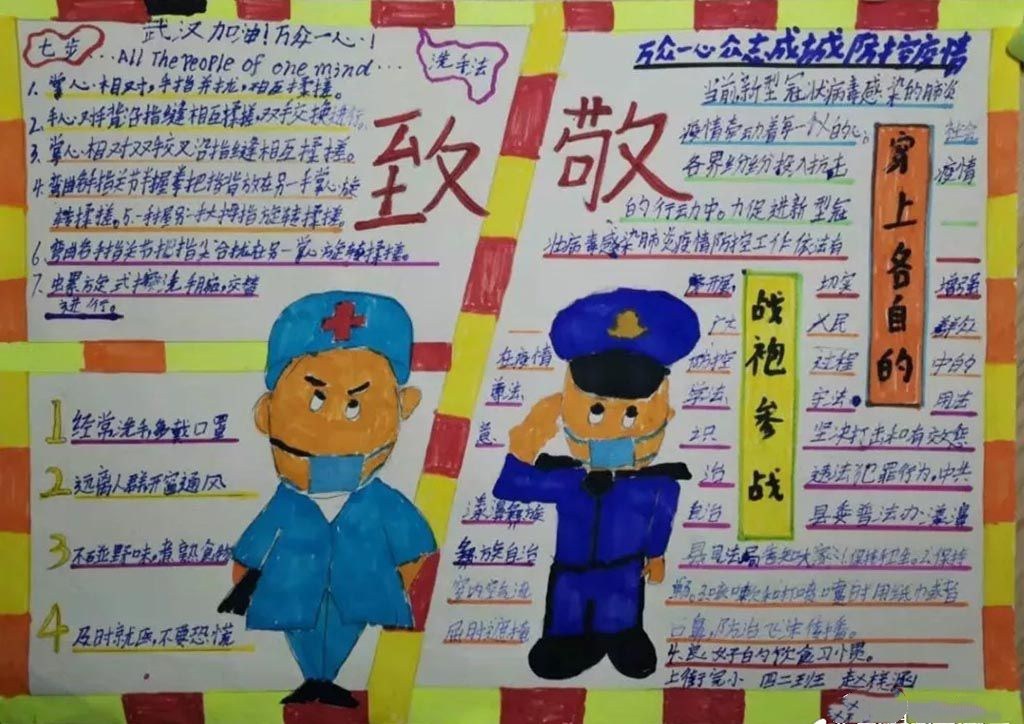 七步
洗手法
武汉加油!万众一心!
...All The People of one mind...
1、掌心相对,手指并拢,相互揉搓。
2、手心对手背沿指缝相互揉搓,双手交换进行。
3、掌心相对双手交叉沿指缝相互揉搓。
4、弯曲各手指关节半握拳把指背放在另一手掌心旋
转揉搓。5、一手握另一手大拇指旋转揉搓。
6、弯曲各手指关节把指尖合拢在另一掌心旋转揉搓。
7、
进行。
致敬
1 经常洗手多戴口罩
2 远离人群开窗通风
3 不碰野味,煮熟食物
4 及时就医,不要恐慌
万众一心众志成城防控疫情
当前,新型冠状病毒感染的肺炎
疫情牵动着每一个人的心。社会
各界纷纷投入抗击疫情
的行动中。力促进新型冠
状病毒感染肺炎疫情防控工作依法有
序开展,切实增强
广大人民群众
在疫情防控过程中的
尊法学法守法用法
意识
坚决打击和有效惩
治违法犯罪行为,中共
漾濞彝族自治县委普法办、漾濞
彝族自治县司法局告知大家:1.保持卫生。2.保持
室内空气流
3.咳嗽和打喷嚏时用纸巾或者
口鼻,防治飞沫传播。
4.良好的饮食习惯。
穿上各自的
战袍参战
上街完小 四二班